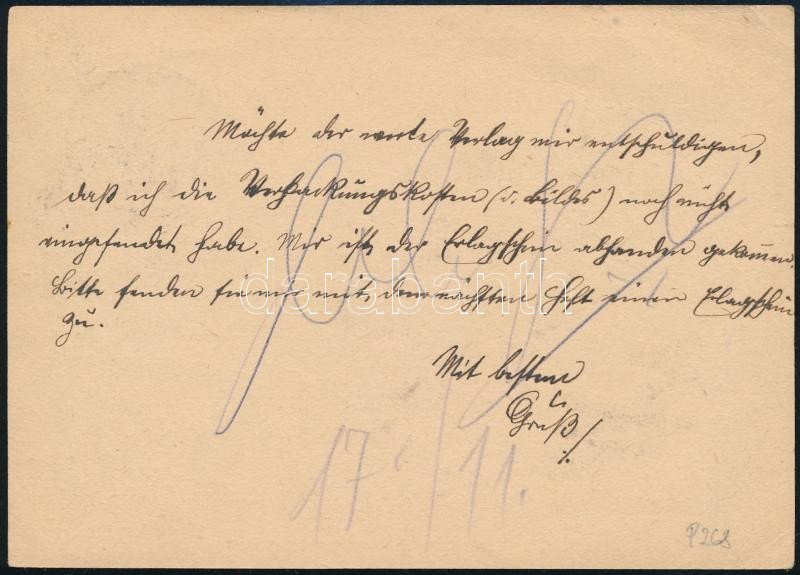 Möchte der werte Verlag mir entschuldigen,
daß ich die Verpackungskosten (d. Bildes) noch nicht
eingesendet habe. Mir ist der Erlagschein abhanden gekommen.
Bitte senden sie mir mit dem nächsten Heft einen Erlagschein
zu.
Mit bestem
Gruß
17/11.
darabanth
P268